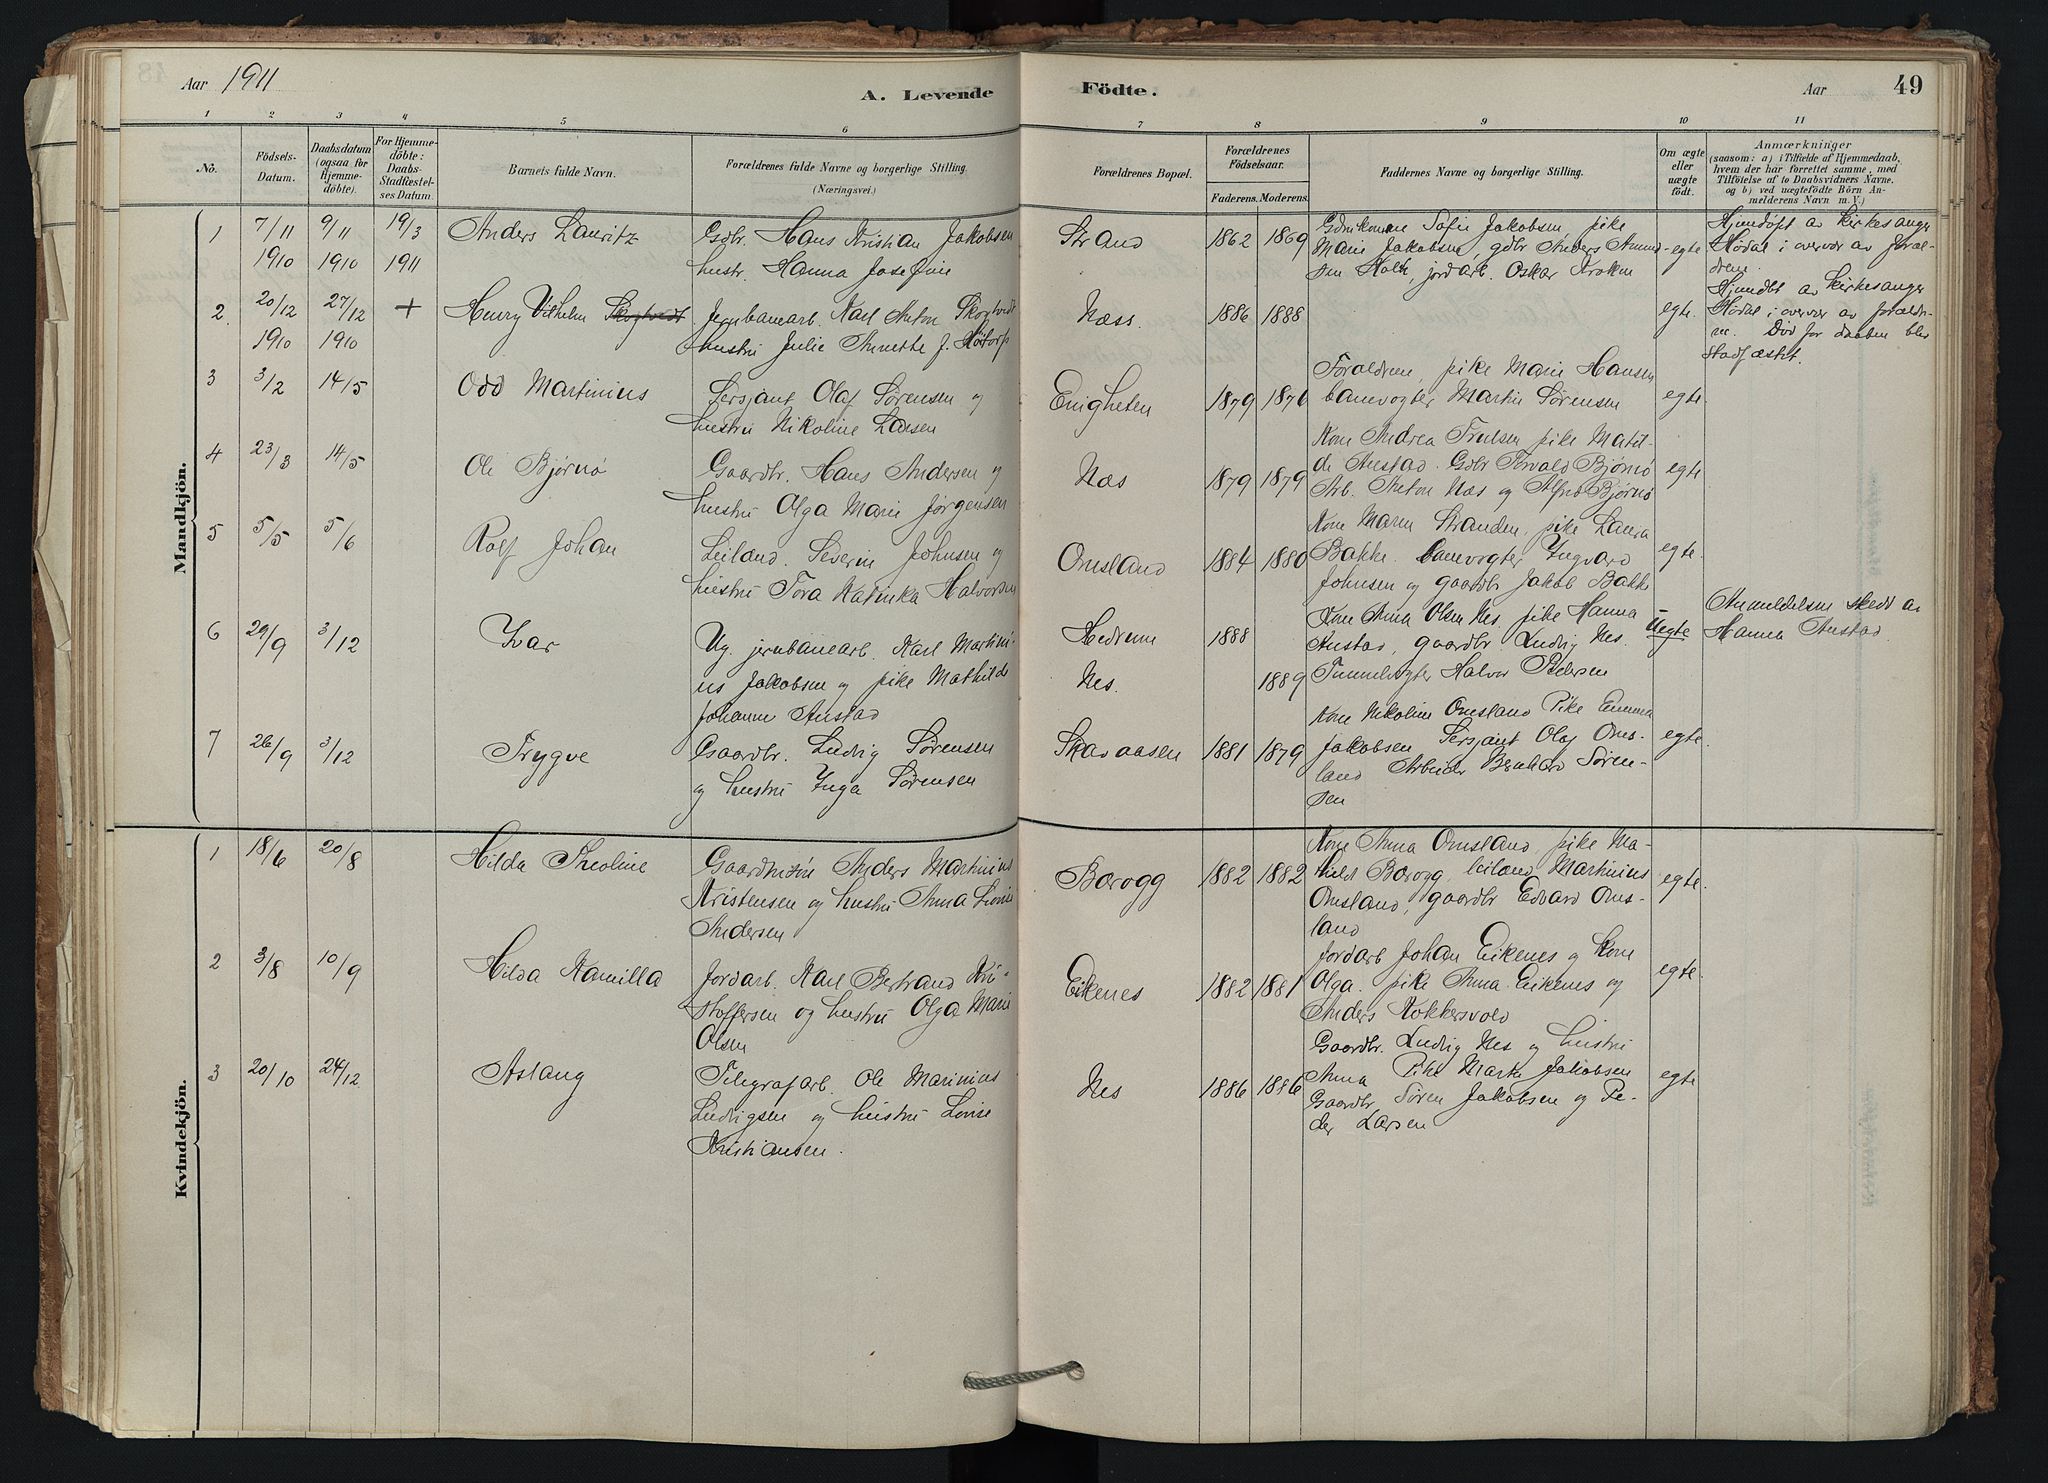 Aar 1911
A. Levende
Födte.
Aar
49
1 2 3 4 5 6 7 8 9 10 11
No.
Födsels-
Datum.
Daabsdatum
(ogsaa for
Hjemme-
döbte).
For Hjemme-
döbte:
Daabs-
Stadfæstel-
ses Datum.
Barnets fulde Navn.
Forældrenes fulde Navne og borgerlige Stilling.
(Næringsvei.)
Forældrenes Bopæl.
Forældrenes
Födselsaar.
Faderens. Moderens.
Faddernes Navne og borgerlige Stilling.
Om ægte
eller
uægte
födt.
Anmærkninger
(saasom: a) i Tilfælde af Hjemmedaab,
hvem der har forrettet samme, med
Tilföielse af to Daabsvidners Navne,
og b) ved uægtefödte Börn An-
melderens Navn m. V.)
Mandkjön.
1 7/11 9/11 19/3 Anders Lauritz Gdbr. Hans Kristian Jakobsen
1910 1910 1911 hustr. Hanna Josefine
Strand 1862 1869
Sofie Jakobsen, pike
Marie Jakobsen, gdbr Anders Amund-
sen Holt, jordarb. Oskar Kroken
egte
Hjemdøbt av Kirkesanger
Hødal i overvær av foræl-
drene.
2. 20/12 27/12 + Henry Vilhelm Skogtvedt Jernbanearb. Karl Anton Skogtvedt
1910 1910 hustru Julie Annette f.
Næss. 1886 1888 egte.
Hjemdbt av Kirkesanger
Hødal i overvær av forældre-
ne. Død før daaben blev
stadfæstet.
3 3/2 14/5 Odd Martinius Sersjant Olaf Sørensen og
hustru Nikoline Larsen
Enigheten 1879 1876
Forældrene, pike Marie Hansen
banevogter Martin Sørensen
egte.
4 23/3 14/5 Ole Bjørnø Gaardbr. Hans Andersen og
hustru Olga Marie Jørgensen
Næs 1879 1879
Kone Andrea Trulsen pike Matil-
de Anstad. Gdbr Torvald Bjørnø
Arb. Anton Næs og Alfred Bjørnø
egte
5 5/5 5/6 Rolf Johan Leilænd. Severin Johnsen og
hustru Tora Katinka Halvorsen
Omsland 1884 1880
Kone Maren Stranden, pike Laura
Bakke. banevogter Ingvard
Johnsen og gaardbr Jakob Bakke
egte.
6 29/9 3/12 Ivar Ug. jernbanearb. Karl Martini-
us Jakobsen og pike Mathilde
Johanne Anstad
Hedrum 1888
Nes. 1889
Kone Anna Olsen Nes, pike Hanna
Anstad, gaardbr. Ludvig Nes.
Tunnelvogter Halvor Pedersen
Uegte
Anmeldelsen skedt av
Hanna Anstad.
7 26/9 3/12 Trygve Gaardbr. Ludvig Sørensen
og hustru Inga Sørensen
Skavaasen 1881 1879
Kone Nikoline Omsland Pike Emma
Jakobsen Sersjant Olaf Oms-
land Arbeider Bernhard Søren-
sen
egte.
Kvindekjön.
1 18/6 20/8 Hilda Theoline Gaardmsøn Anders Martinius
Kristensen og hustru Anna Lovise
Andersen
Barogg 1882 1882
Kone Anna Omsland, pike Ma-
thilde Barogg, leilænd Martinius
Omsland, gaardbr Edvard Oms-
land
egte.
2 3/8 10/9 Hilda Kamilla Jordarb. Karl Bertrand Kri-
stoffersen og hustru Olga Marie
Olsen
Eikenes 1882 1881
Jordarb Johan Eikenes og Kone
Olga. pike Anna Eikenes og
Anders Kokkersvold
egte.
3 20/10 24/12 Aslaug Telegrafarb. Ole Marinius
Ludvigsen og hustru Lovise
Kristiansen.
Nes 1886 1886
Gaardbr. Ludvig Nes og hustru
Anna Pike Marte Jakobsen
Gaardbr Søren Jakobsen og Pe-
der Larsen
egte